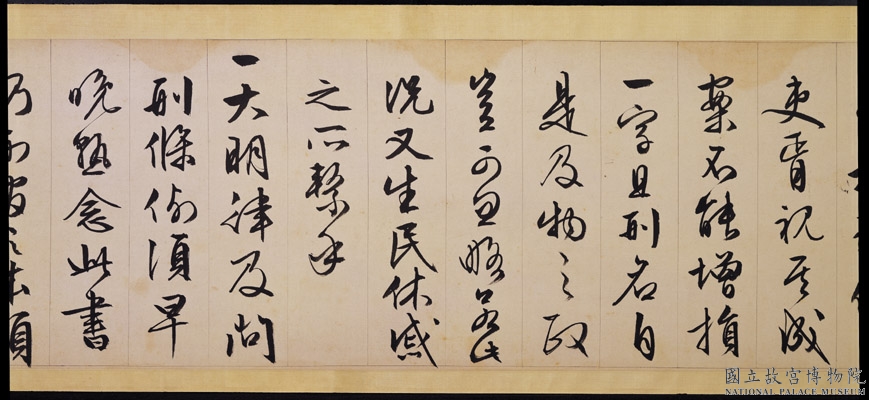 吏胥視其成
案不能增損
一字且刑名自
是及物之政
豈可忽略
況又生民休戚
之所繫乎
一大明律及問
刑條例須早
晚熟念此書
乃
國立故宮博物院
NATIONAL PALACE MUSEUM